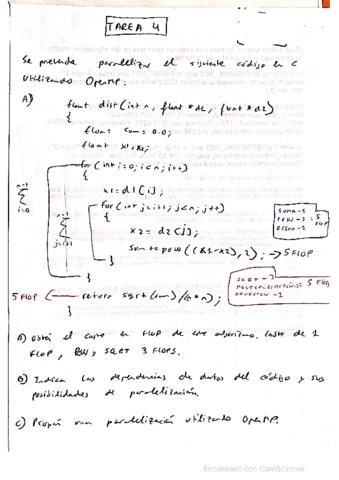 TAREA 4
Se pretende paralelizar el siguiente código en C
Utilizando OpenMP:
A)
float dist(int n, float *d1, float *d2)
{
float sum = 0.0;
float x1, x2;
for(int i=0; i<n; i++)
{
x1 = d1[i];
for(int j=i+1; j<n; j++)
{
x2 = d2[j];
sum += pow((x1-x2), 2); -> 5 FLOP
}
}
5 FLOP return sqrt(sum)/(n*n);
}
n-1
Σ
i=0
n-1
Σ
j=i+1
suma-1
pow-3 = 5 FLOP
resta-1
sqrt-3
multiplicación-1 = 5 FLOPs
división-1
A) Obtén el coste en FLOP de este algoritmo. coste de 1
FLOP, POW y SQRT 3 FLOPS.
B) Indica las dependencias de datos del código y sus
posibilidades de paralelización.
C) Propón una paralelización utilizando OpenMP.
Escaneado con CamScanner